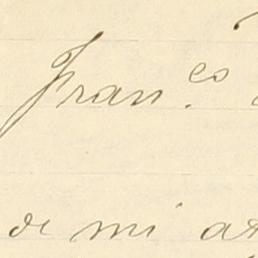 Fran.co
de mi at